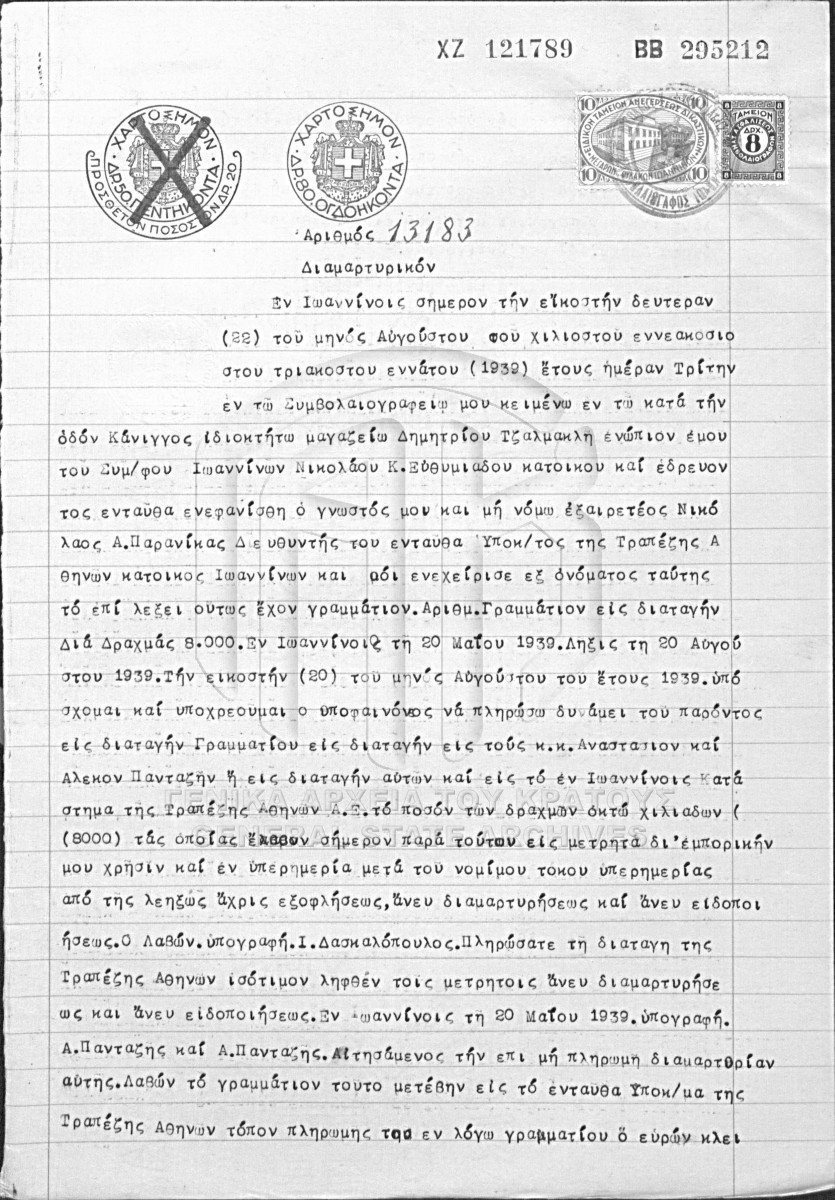 ΧΖ 121789 ΒΒ 295212
ΧΑΡΤΟΣΗΜΟΝ
ΔΡ.50.ΠΕΝΤΗΚΟΝΤΑ
ΠΡΟΣΘΕΤΟΝ ΠΟΣΟΣΤΟΝ ΔΡ. 20
ΧΑΡΤΟΣΗΜΟΝ
ΔΡ.80.ΟΓΔΟΗΚΟΝΤΑ
10 10
10 10
ΤΑΜΕΙΟΝ
ΔΡΧ.
8
Αριθμός 13183
Διαμαρτυρικόν
Εν Ιωαννίνοις σημερον τήν εἰκοστήν δευτεραν
(22) τοῦ μηνός Αὐγούστου τοῦ χιλιοστοῦ εννεακοσιο
στου τριακοστου εννάτου (1939) ἔτους ἡμέραν Τρίτην
ἐν τῶ Συμβολαιογραφειω μου κειμένω εν τῶ κατά τήν
ὁδόν Κάνιγγος ἰδιοκτήτω μαγαζείω Δημητρίου Τζαλμακλη ἐνώπιον ἐμου
του Συμ/φου Ιωαννίνων Νικολάου Κ.Εὐθυμιαδου κατοικου καί ἑδρευον
τος ενταυθα ενεφανίσθη ὁ γνωστός μου και μή νόμω ἐξαιρετέος Νικό
λαος Α.Παρανίκας Διευθυντής του ενταυθα Ὑποκ/τος της Τραπέζης Α
θηνών κατοικος Ιωαννίνων και μοι ενεχείρισε εξ ὀνόματος ταύτης
τό ἐπί λεξει οὑτως ἔχον γραμμάτιον.Αριθμ.Γραμμάτιον εἰς διαταγήν
Διά Δραχμάς 8.000.Εν Ιωαννίνοις τη 20 Μαΐου 1939.Ληξις τη 20 Αὐγού
στου 1939.Τήν εικοστήν (20) τοῦ μηνός Αὐγούστου του ἔτους 1939.ὑπό
σχομαι καί υποχρεοῦμαι ο ὑποφαινόνεος νά πληρώσω δυνάμει τοῦ παρόντος
εἰς διαταγήν Γραμματίου εἰς διαταγήν εἰς τούς κ.κ.Αναστασιον καί
Αλεκον Πανταζήν ἤ εἰς διαταγήν αὐτών καί εἰς τό ἐν Ιωαννίνοις Κατά
στημα της Τραπέζης Αθηνών Α.Ε.τό ποσόν των δραχμών ὀκτώ χιλιαδων (
(8000) τάς ὁποίας ἔλαβον σήμερον παρά τούτων εἰς μετρητά δι'ἐμπορικήν
μου χρῆσιν καί ἐν ὑπερημερία μετά τοῦ νομίμου τοκου ὑπερημερίας
από της λεηξως ἄχρις εξοφλήσεως,ἄνευ διαμαρτυρήσεως καί ἄνευ εἰδοποι
ήσεως.Ο Λαβών.ὑπογραφή.Ι.Δασκαλόπουλος.Πληρώσατε τη διαταγη της
Τραπέζης Αθηνών ἰσότιμον ληφθέν τοις μετρητοις ἄνευ διαμαρτυρήσε
ως και ἄνευ εἰδοποιήσεως.Εν Ιωαννίνοις τη 20 Μαΐου 1939.ὑπογραφή.
Α.Πανταζης καί Α.Πανταζης.Αἰτησάμενος τήν επι μή πληρωμη διαμαρτυρίαν
αὐτης.Λαβών τό γραμμάτιον τουτο μετέβην εἰς τό ἐνταυθα Ὑποκ/μα της
Τραπέζης Αθηνών τόπον πληρωμης του εν λόγω γραμματίου ὅ εὑρών κλει
ΓΕΝΙΚΑ ΑΡΧΕΙΑ ΤΟΥ ΚΡΑΤΟΥΣ
GENERAL STATE ARCHIVES